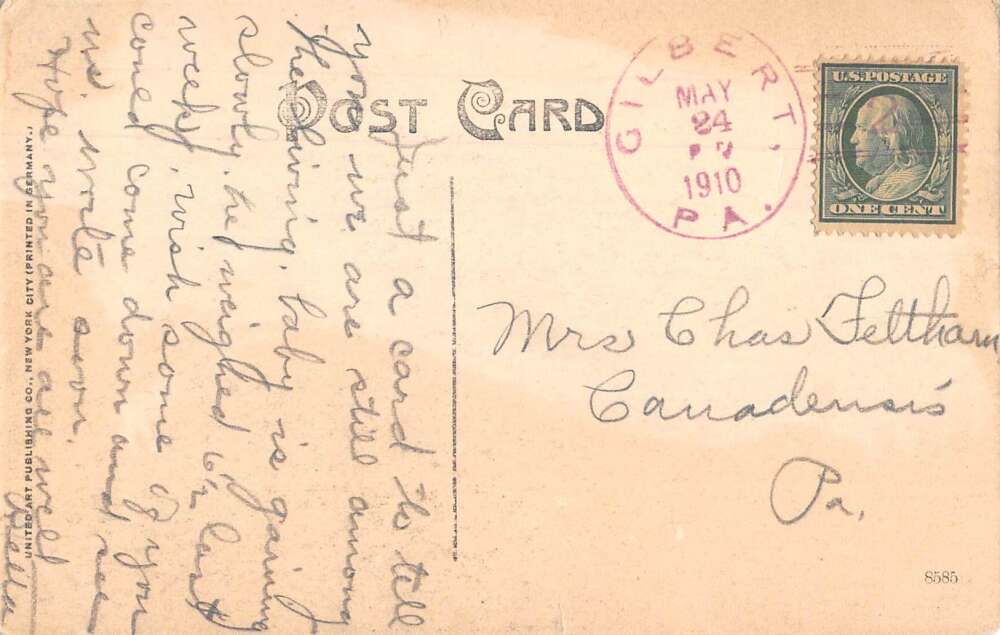 POST CARD
GILBERT,
MAY
24
PM
1910
PA.
U.S. POSTAGE
ONE CENT
Just a card to tell
you we are still among
the living. baby is gaining
slowly. he weighed 6½ last
week, wish some of you
coued come down and see
us. write soon.
Hope you are all well
Mrs Chas Feltham
Canadensis
Pa.
UNITED ART PUBLISHING CO., NEW YORK CITY (PRINTED IN GERMANY.)
8585